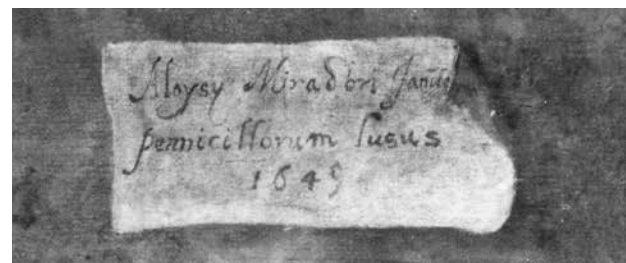 Aloysy Miradori
pennicillorum lusus
1649